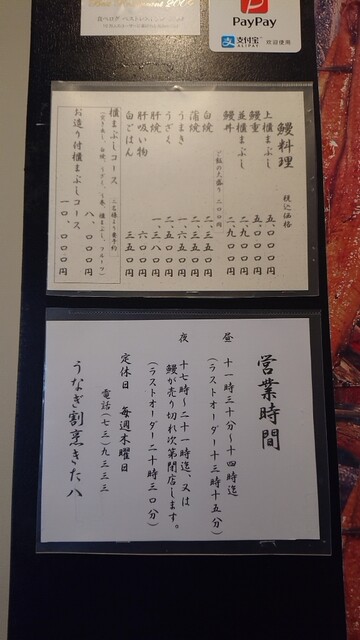 PayPay
支付宝
ALIPAY
欢迎使用
鰻料理
税込価格
上櫃まぶし 五、〇〇〇円
鰻重 五、〇〇〇円
並櫃まぶし 二、九〇〇円
鰻丼 二、九〇〇円
ご飯の大盛り 二〇〇円
白焼 二、三五〇円
蒲焼 二、三五〇円
うまき 一、六五〇円
うざく 二、五〇〇円
肝焼 一、三八〇円
肝吸い物 六〇〇円
白ごはん 三五〇円
櫃まぶしコース 八、〇〇〇円
お造り付櫃まぶしコース 一〇、〇〇〇円
営業時間
昼 十一時三十分～十四時迄
(ラストオーダー十三時十五分)
夜 十七時～二十一時迄、又は
鰻が売り切れ次第閉店します。
(ラストオーダー二十時三〇分)
定休日 毎週木曜日
電話(七三)九三三三
うなぎ割烹きた八